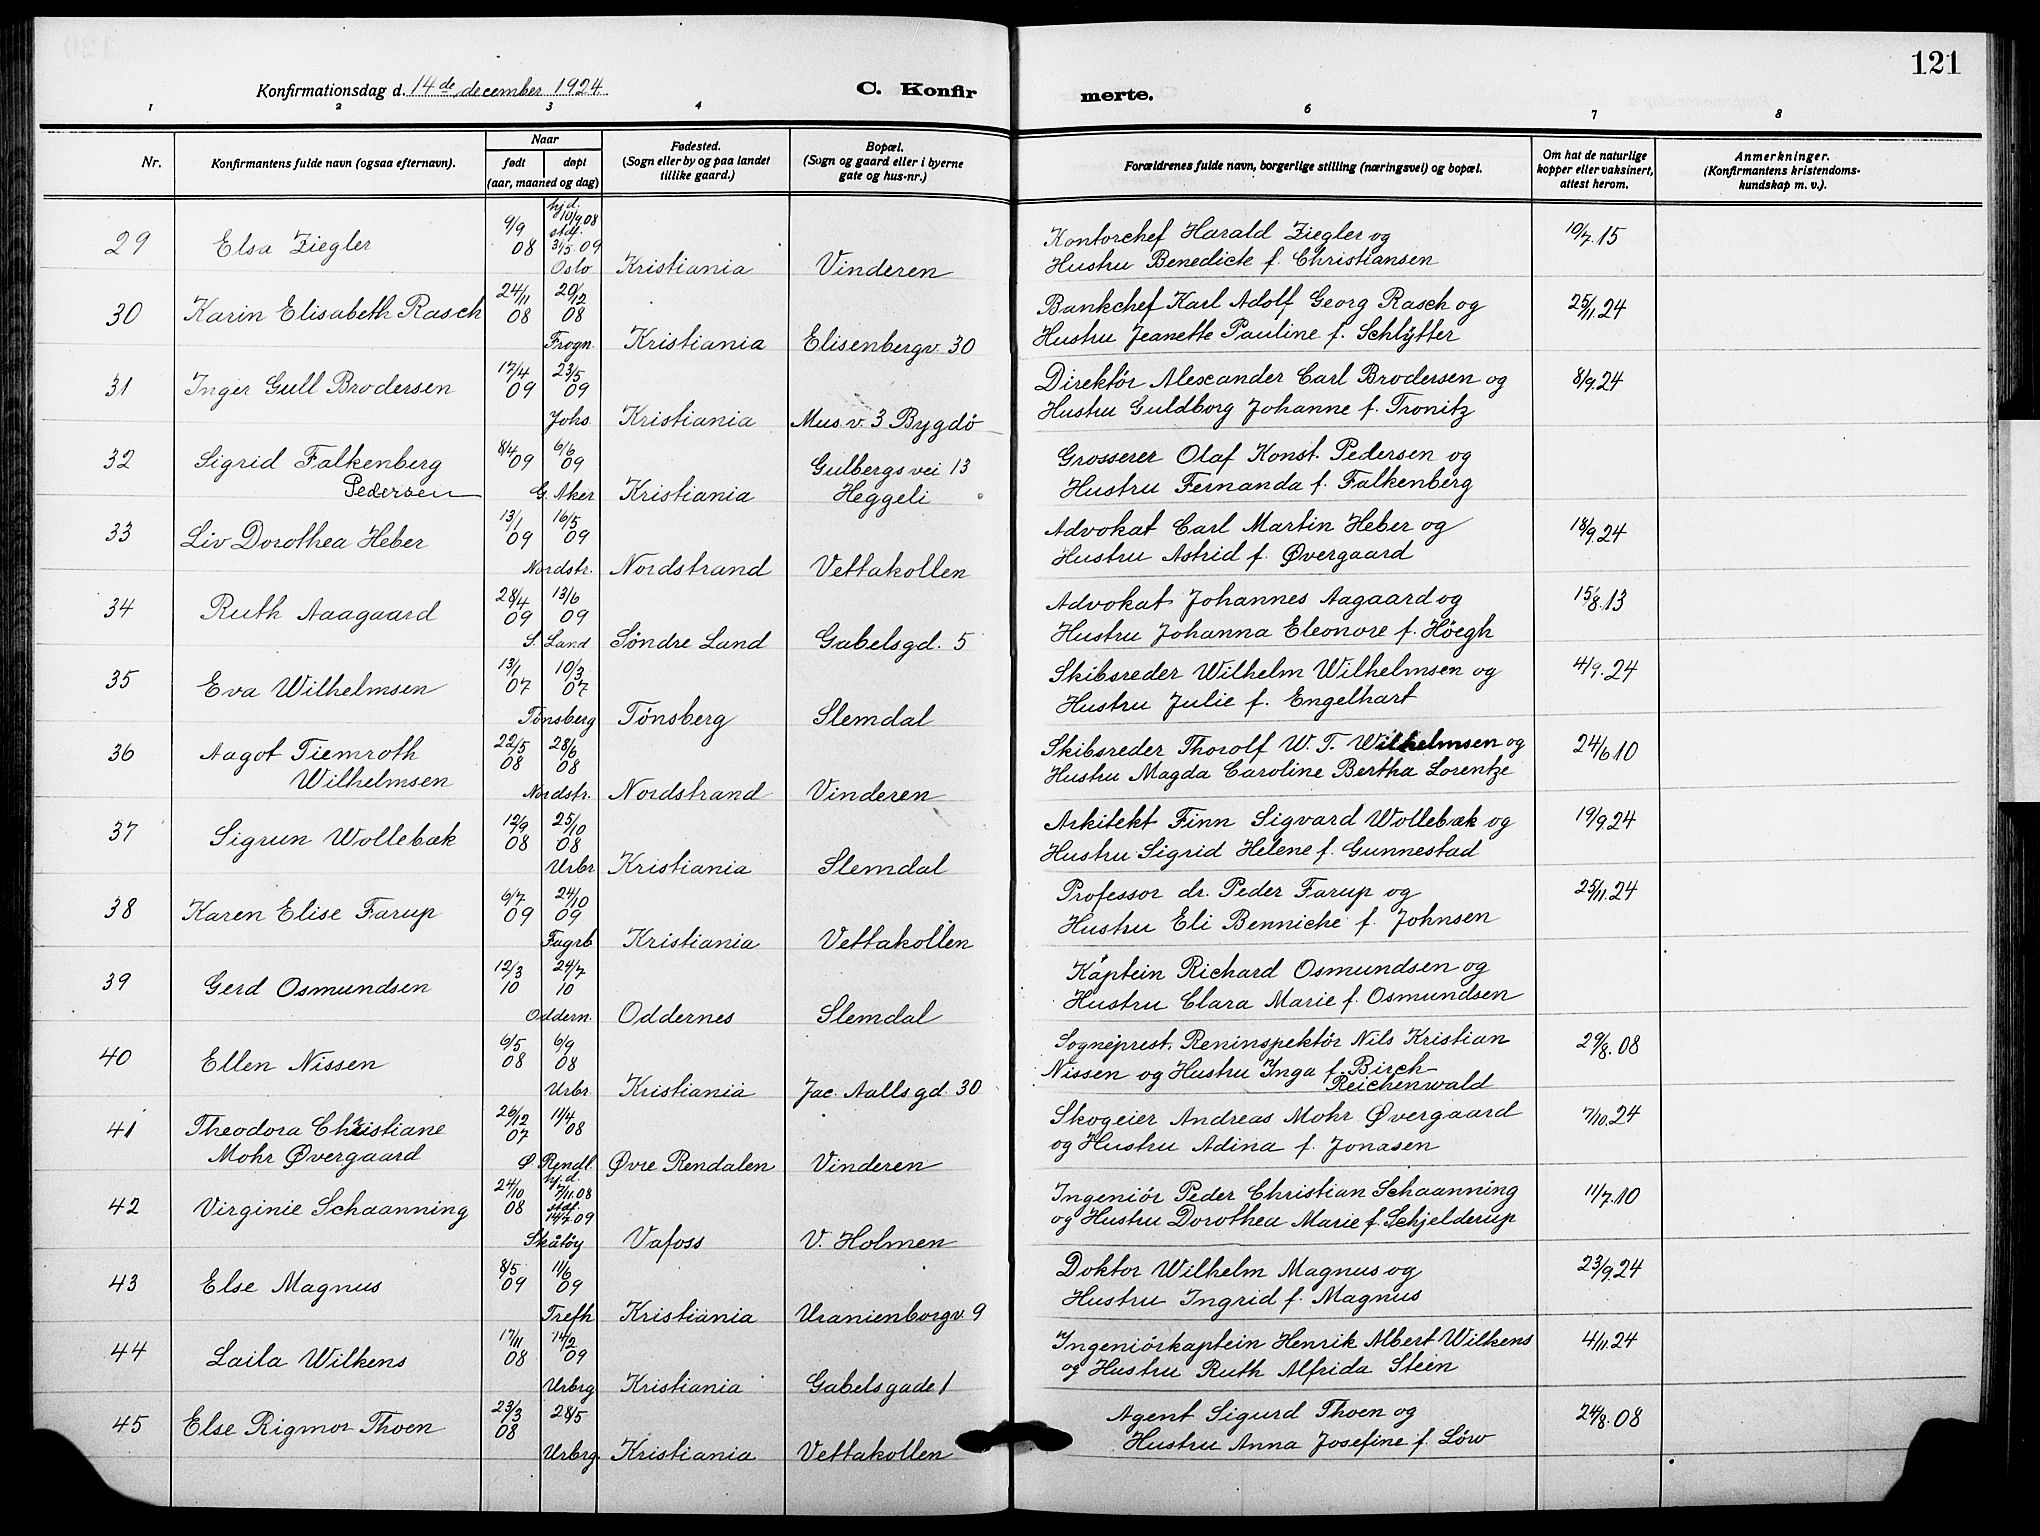 121
Konfirmationsdag d. 14de december 1924.
C. Konfir
merte.
1 2 3 4 6 7 8
Nr.
Konfirmantens fulde navn (ogsaa efternavn).
Naar
født døpt
(aar, maaned og dag)
Fødested.
(Sogn eller by og paa landet
tillike gaard.)
Bopæl.
(Sogn og gaard eller i byerne
gate og hus-nr.)
Forældrenes fulde navn, borgerlige stilling (næringsvei) og bopæl.
Om hat de naturlige
kopper eller vaksinert,
attest herom.
Anmerkninger.
(Konfirmantens kristendoms-
kundskap m. v.).
hjd.
9/9 10/9 08
stdf.
29 Elsa Ziegler 08 31/5 09 Kontorchef Harald Ziegler og 10/7.15
Oslo Kristiania Vinderen Hustru Benedicte f. Christiansen
24/11 20/12
30 Karin Elisabeth Rasch 08 08 Bankchef Karl Adolf Georg Rasch og 25/11.24
Frogn. Kristiania Elisenbergv. 30 Hustru Jeanette Pauline f. Schlytter
17/4 23/5
31 Inger Gull Brodersen 09 09 Direktør Alexander Carl Brodersen og 8/9.24
Johs. Kristiania Mus.v. 3 Bygdø Hustru Guldborg Johanne f. Tronitz
8/4 6/6
32 Sigrid Falkenberg 09 09 Gulbergs vei 13 Grosserer Olaf Konst. Pedersen og
Pedersen G. Aker Kristiania Heggeli Hustru Fernanda f. Falkenberg
13/1 16/5
33 Liv Dorothea Heber 09 09 Advokat Carl Martin Heber og 18/9.24
Nordstr. Nordstrand Vettakollen Hustru Astrid f. Øvergaard
28/4 13/6
34 Ruth Aaagaard 09 09 Advokat Johannes Aagaard og 15/8.13
S. Land Søndre Land Gabelsgd. 5 Hustru Johanna Eleonore f. Höegh
13/1 10/3
35 Eva Wilhelmsen 07 07 Skibsreder Wilhelm Wilhelmsen og 4/9.24
Tønsberg Tønsberg Slemdal Hustru Julie f. Engelhart
22/5 28/6
36 Aagot Tiemroth 08 08 Skibsreder Thorolf W. T. Wilhelmsen og 24/6.10
Wilhelmsen Nordstr. Nordstrand Vinderen Hustru Magda Caroline Bertha Lorentze
12/9 25/10
37 Sigrun Wollebæk 08 08 Arkitekt Finn Sigvard Wollebæk og 19/9.24
Urbr Kristiania Slemdal Hustru Sigrid Helene f. Gunnestad
6/7 24/10
38 Karen Elise Farup 09 09 Professor dr. Peder Farup og 25/11.24
Fagrb Kristiania Vettakollen Hustru Eli Bennicke f. Johnsen
12/3 24/7
39 Gerd Osmundsen 10 10 Kaptein Richard Osmundsen og
Oddern. Oddernes Slemdal Hustru Clara Marie f. Osmundsen
6/5 6/9
40 Ellen Nissen 08 08 Sogneprest. Reninspektør Nils Kristian 29/8.08
Nissen og Hustru Inga f. Birch-
Urbr. Kristiania Jac. Aallsgd. 30 Reichenwald
26/12 11/4
41 Theodora Christiane 07 08 Skogeier Andreas Mohr Øvergaard 7/10.24
Mohr Øvergaard Ø. Rendl. Øvre Rendalen Vinderen og Hustru Adina f. Jonasen
hj.d.
24/10 7/11.08
42 Virginie Schaanning 08 stdf. Ingeniør Peder Christian Schaanning 11/7.10
14/7 09 og Hustru Dorothea Marie f. Schjelderup
Skåtøy Vafoss V. Holmen
8/5 11/6
43 Else Magnus 09 09 Doktor Wilhelm Magnus og 23/9.24
Trefh Kristiania Uranienborgv 9 Hustru Ingrid f. Magnus
17/11 14/2
44 Laila Wilkens 08 09 Ingeniørkaptein Henrik Albert Wilkens 4/11.24
Urbrg Kristiania Gabelsgade 1 og Hustru Ruth Alfrida Steen
23/3 28/5
45 Else Rigmor Thoen 08 Agent Sigurd Thoen og 24/8.08
Urbrg. Kristiania Vettakollen Hustru Anna Josefine f. Löw